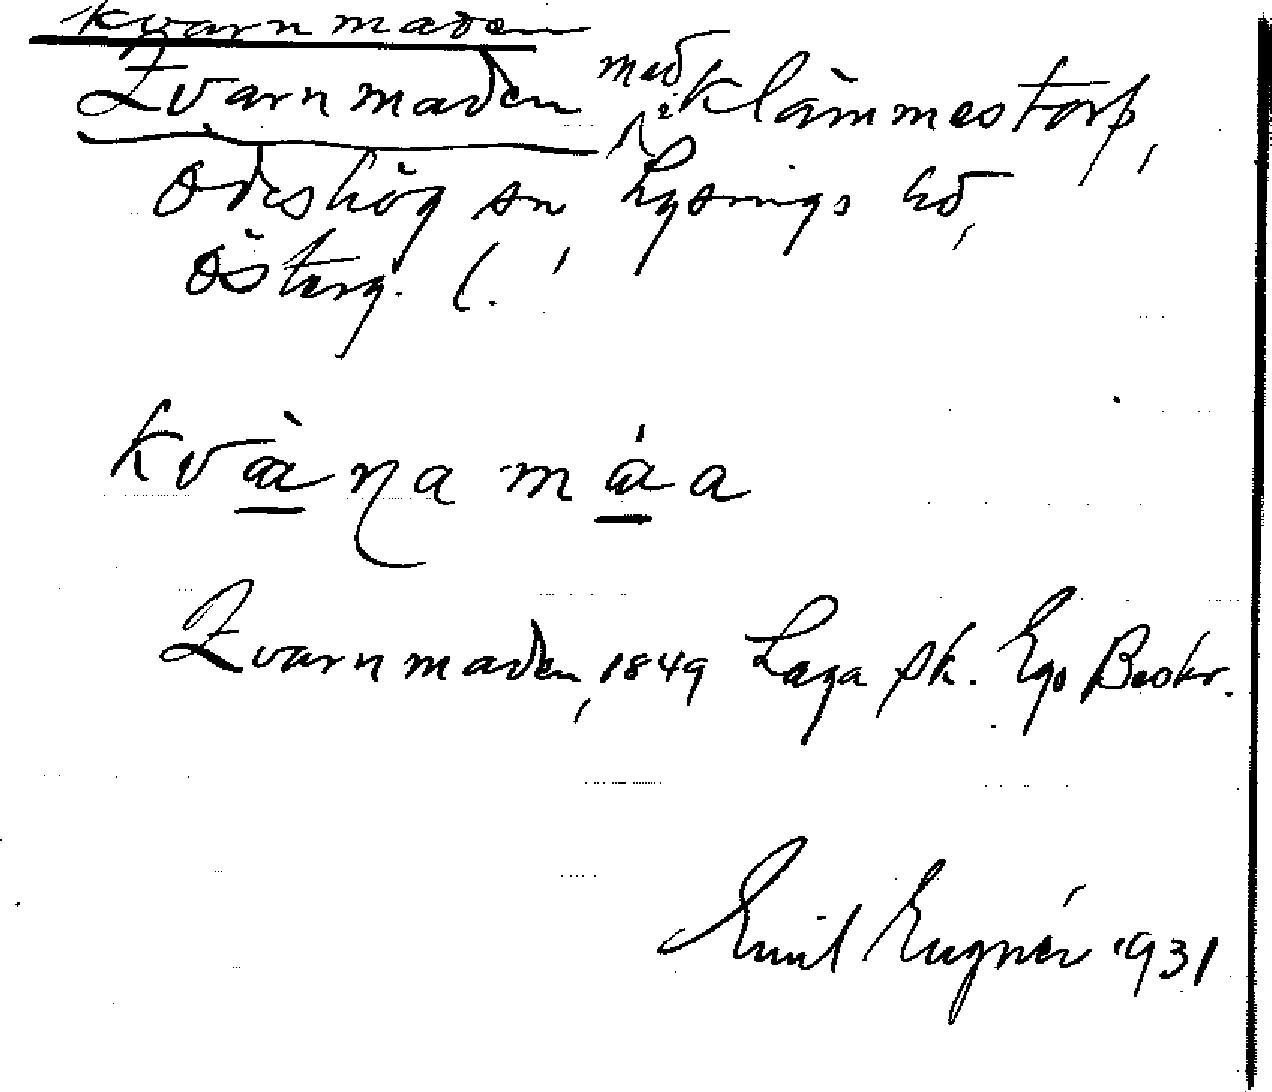 kvarnmaden
Qvarnmaden mad i Klämmestorp,
Ödeshög sn, Lysings hd,
Österg. l.
kvàana máa
Qvarnmaden, 1849 Laga sk. Ego Beskr.
Emil Eugnér 1931